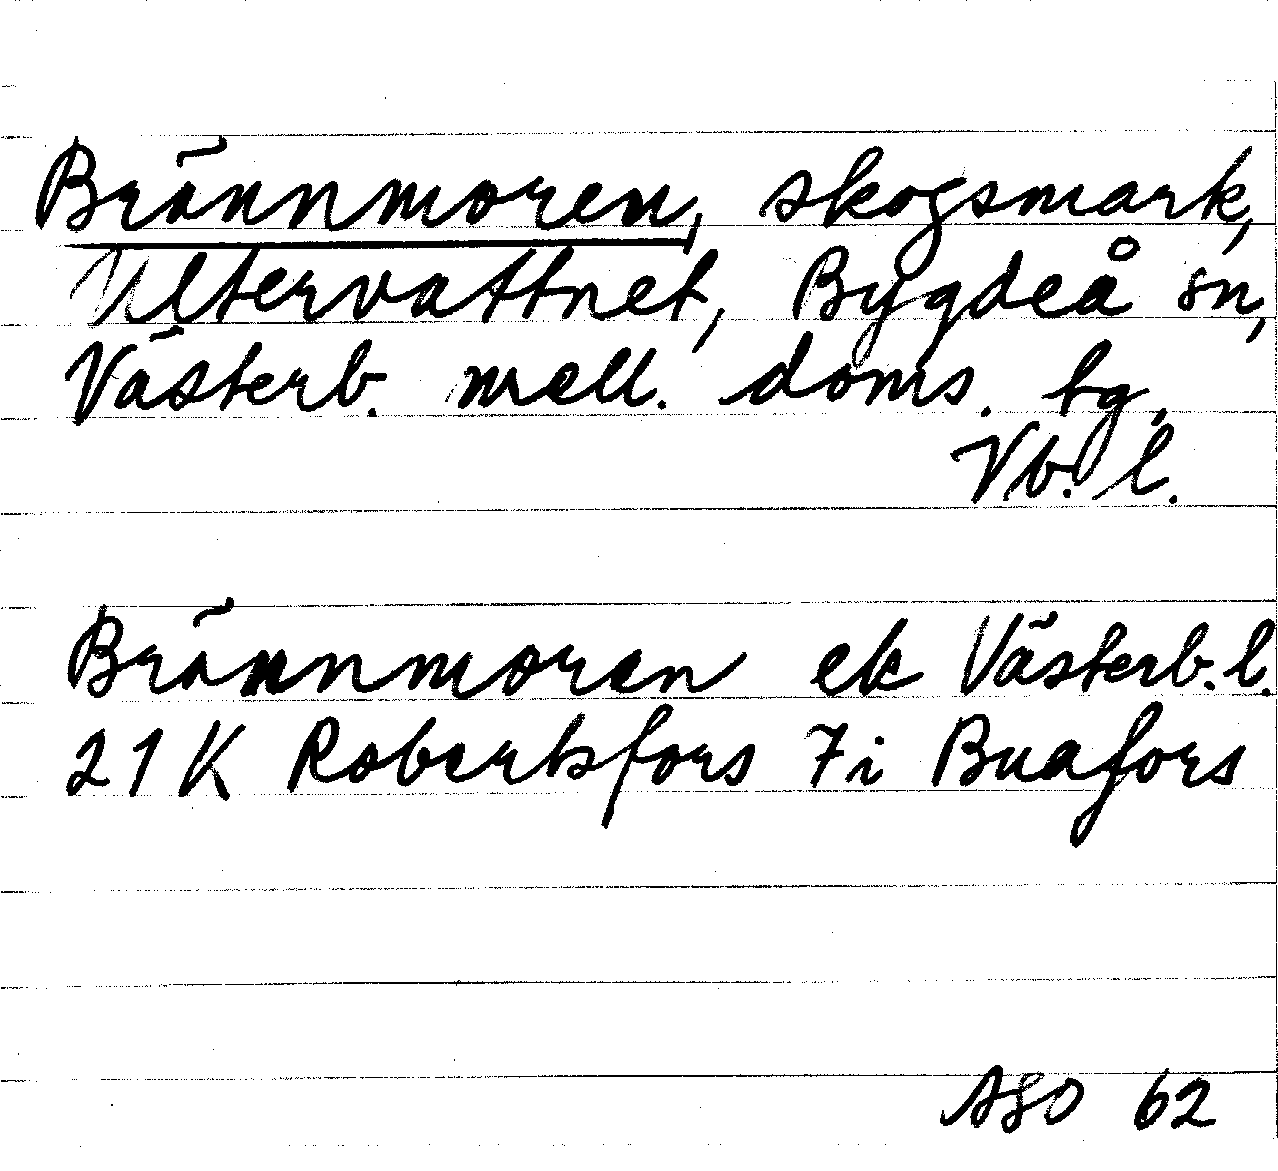 Brännmoren, skogsmark,
Ultervattnet, Bygdeå sn,
Västerb. mell. doms. tg.
Vb. l.
Brännmoran ek Västerb. l.
21 K Robertsfors 7i Buafors
ASO 62